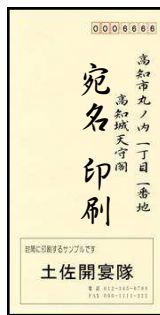 0006666
高知市丸ノ内一丁目一番地
高知城天守閣
宛名印刷
封筒に印刷するサンプルです
土佐開宴隊
電話 012-345-6789
FAX 000-1111-222